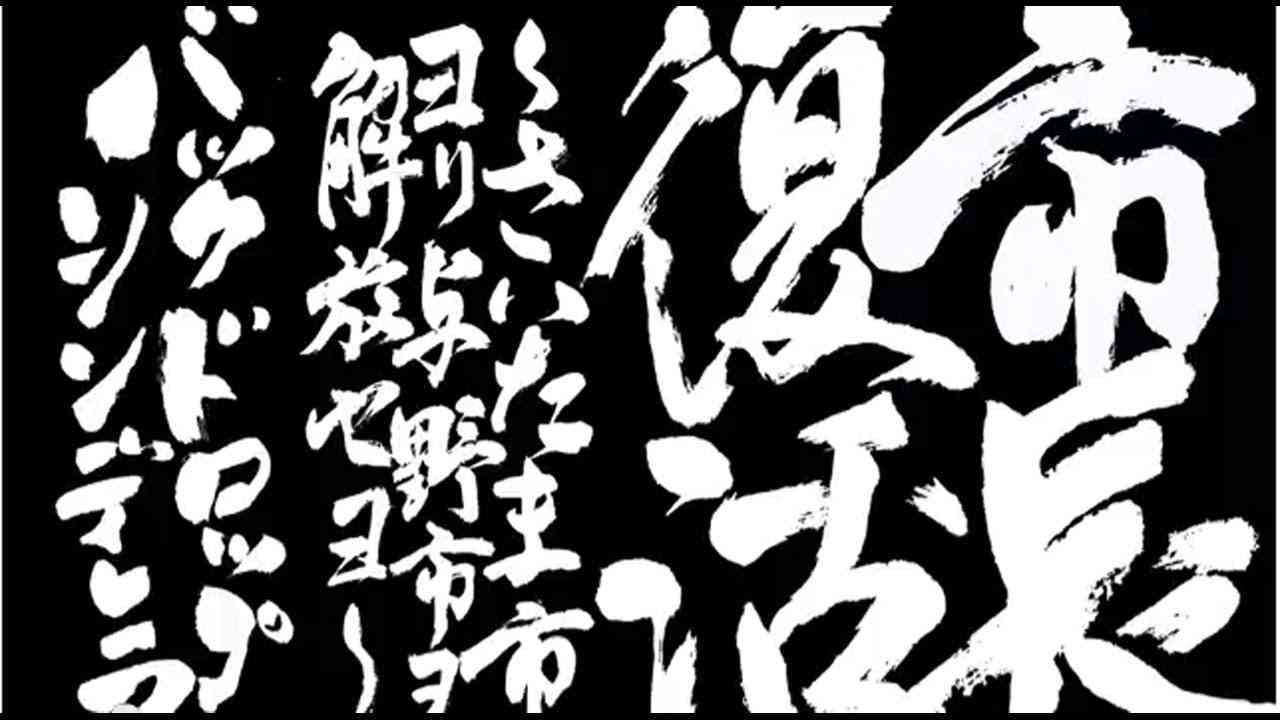 市長
復活
〜さいたま市
ヨリ与野市ヲ
解放セヨ〜
バックドロップ
シンデレラ